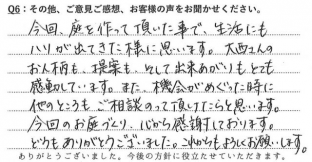 Q6：その他、ご意見ご感想、お客様の声をお聞かせください。
今回、庭を作って頂いた事で、生活にも
ハリが出てきた様に思います。大西さんの
お人柄も、提案も、そして出来あがりもとても
感動しています。また、機会がめぐった時に
他のところもご相談のって頂けたらと思います。
今回のお庭づくり、心から感謝しております。
どうもありがとうございました。これからもよろしくお願いします。
ありがとうございました。今後の方針に役立たせていただきます。